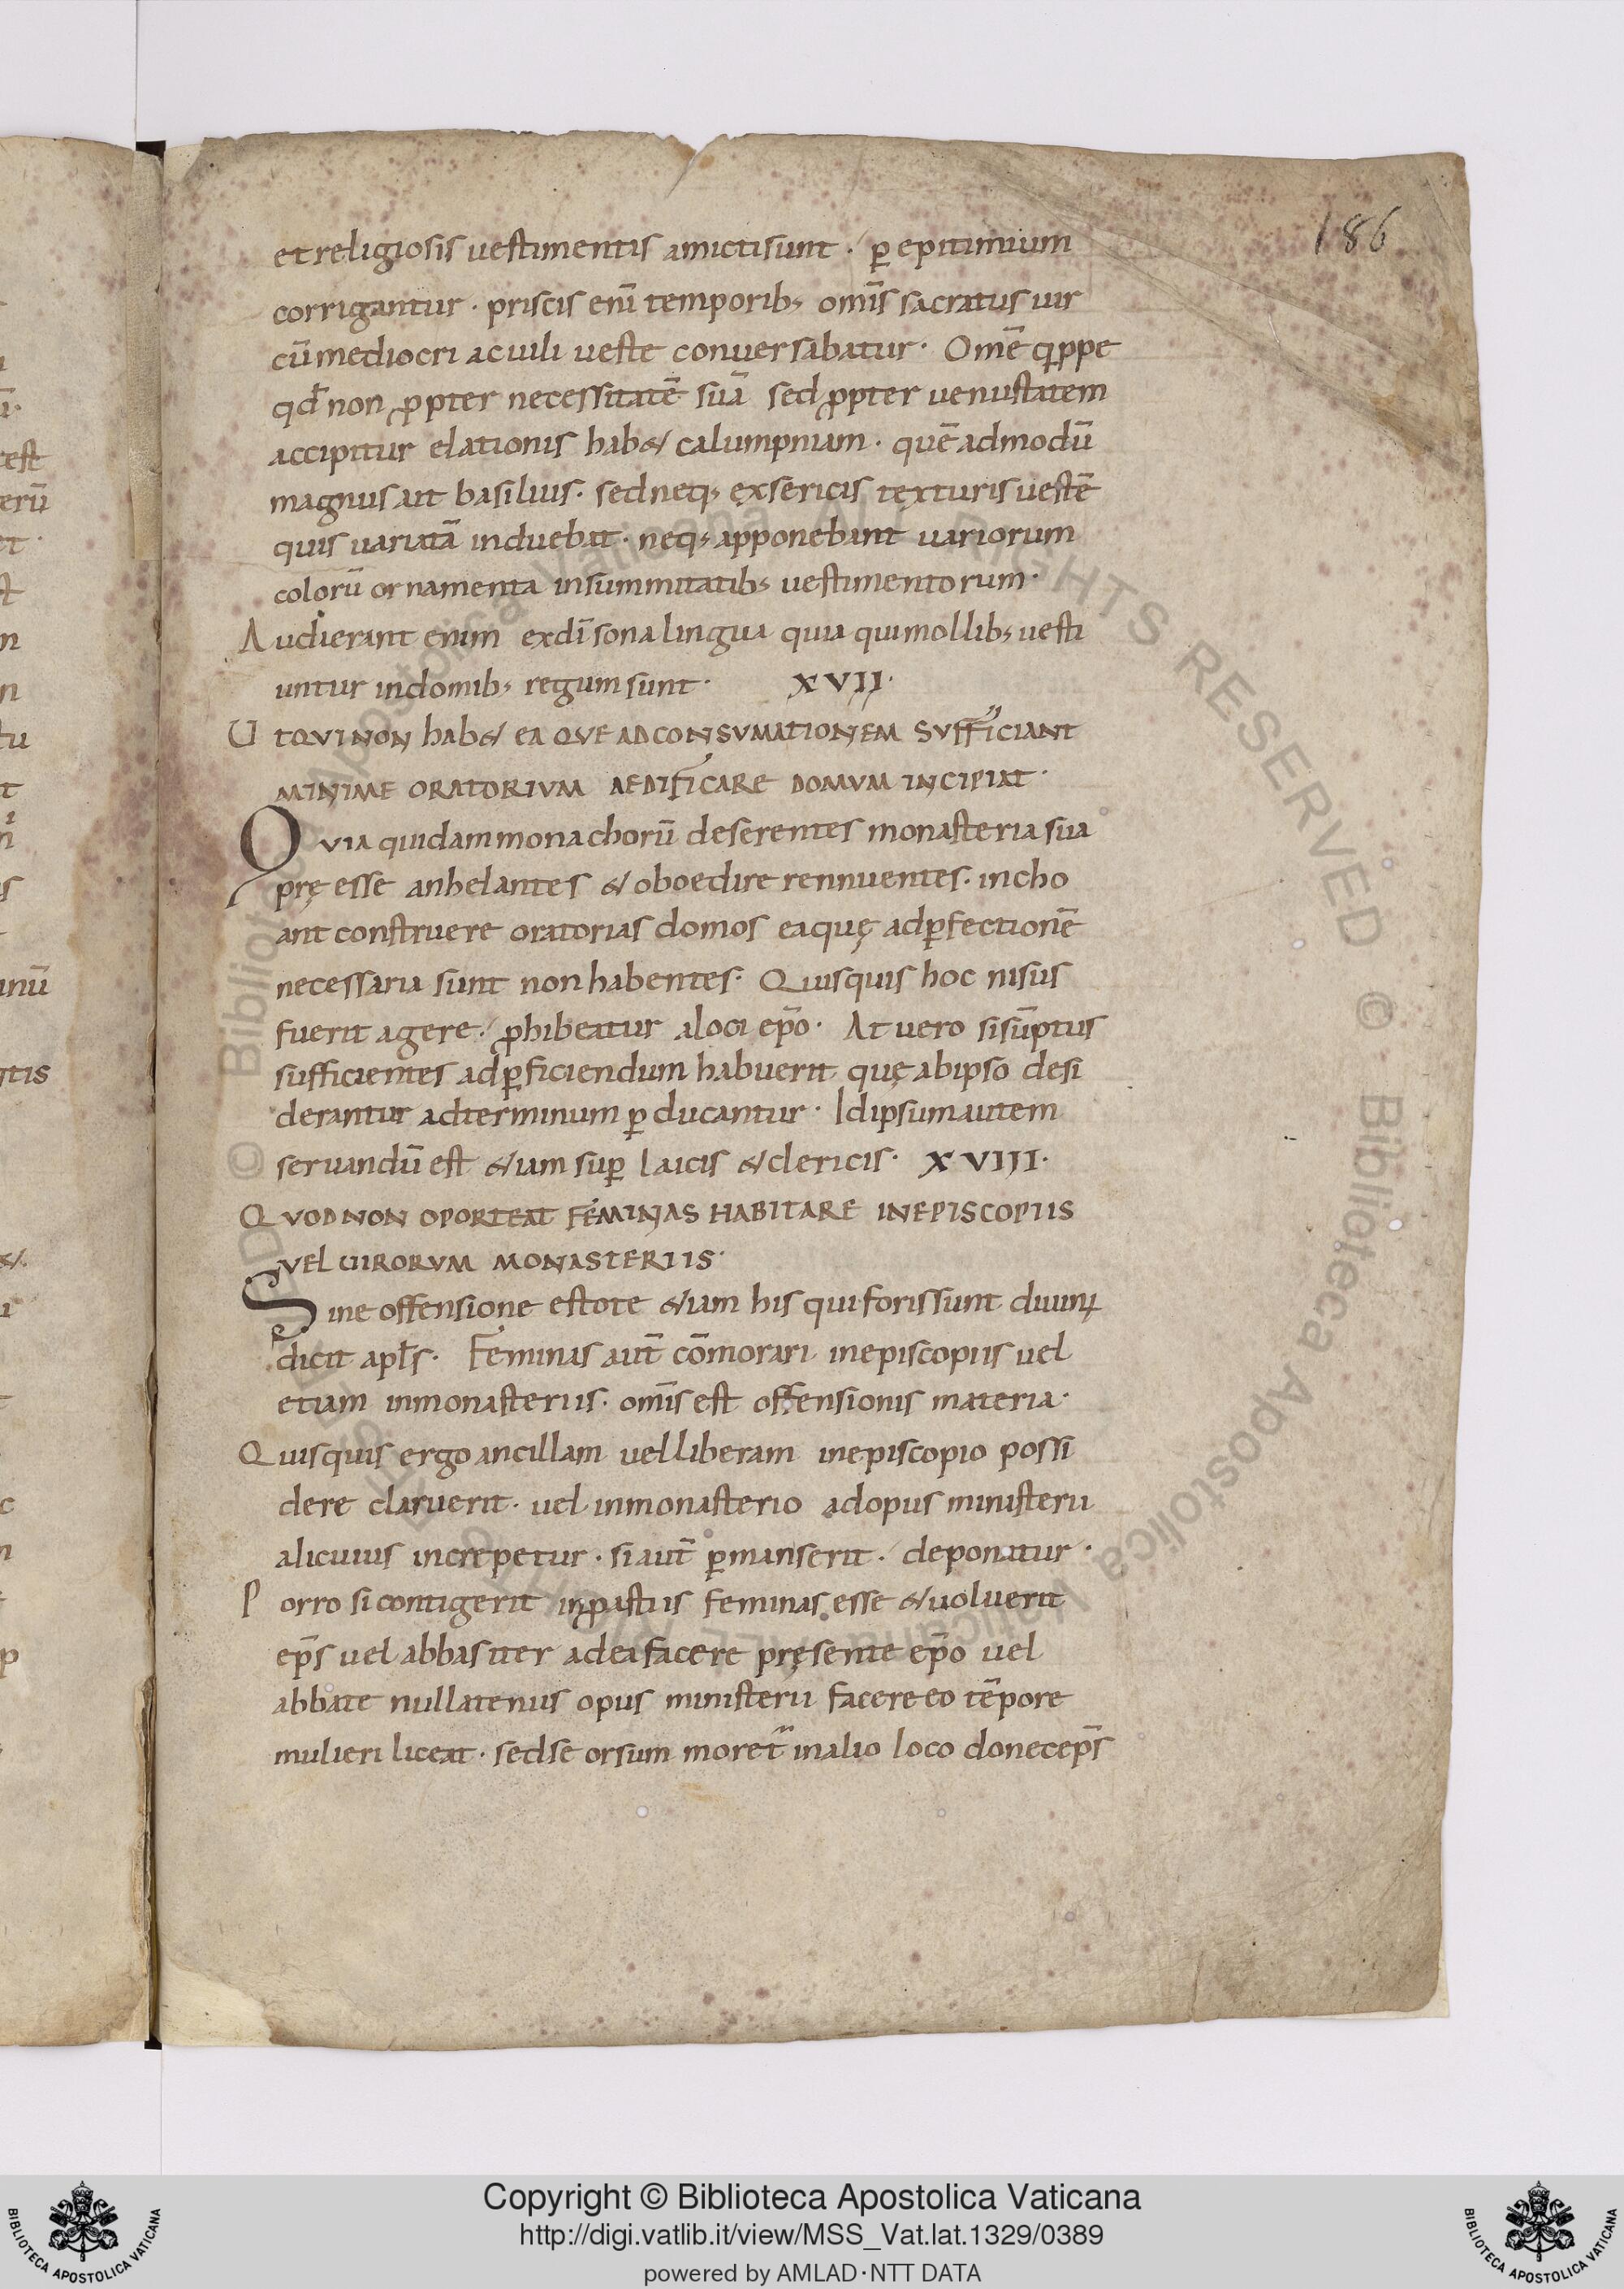 186
et religiosis uestimentis amicti sunt · ꝑ epitimium
corrigantur · priscis eni᷃ temporib; om̅is sacratus uir
cu̅ mediocri ac uili ueste conuersabatur · Om̅e q̇ppe
qd̅ non ꝓpter necessitate̅ sua̅ sed ꝓpter uenustatem
accipitur elationis hab& calumpniam · que̅admodu̅
magnus ait basilius · sed neq; ex sericis texturis ueste̅
quis uariata̅ induebat · neq; apponebant uariorum
coloru̅ ornamenta in summitatib; uestimentorum ·
Audierant enim ex di̅ sona lingua quia qui mollib; uesti
untur in domib; regum sunt · XVII ·
UT QVI NON hab& EA QVE AD CONSVMATIONEM SVFFICIANT
MINIME ORATORIVM AEDIFICARE DOMVM INCIPIAT ·
QVIA quidam monachoru̅ deserentes monasteria sua
pręesse anhelantes & oboedire rennuentes · incho
ant construere oratorias domos ea quę ad ꝑfectione̅
necessaria sunt non habentes · Quisquis hoc nisus
fuerit agere · ꝓhibeatur a loci ep̅o · At uero si su̅ptus
sufficientes ad ꝑficiendum habuerit quę ab ipso desi
derantur ad terminum ꝑducantur · Id ipsum autem
seruandu̅ est &iam suꝑ laicis & clericis · XVIII ·
QVOD NON OPORTEAT FEMINAS HABITARE IN EPISCOPIIS
VEL UIRORVM MONASTERIIS ·
Sine offensione estote &iam his qui foris sunt diuinꝰ
dicit apl̅s · Feminas aut̅ co̅morari in episcopiis uel
etiam in monasteriis · om̅is est offensionis materia ·
Quisquis ergo ancillam uel liberam in episcopio possi
dere claruerit · uel in monasterio ad opus ministerii
alicuius increpetur · si aut̅ ꝑmanserit · deponatur ·
Porro si contigerit in ꝓastiis feminas esse & uoluerit
ep̅s uel abbas iter ad ea facere pręsente ep̅o uel
abbate nullatenus opus ministerii facere eo te̅pore
mulieri liceat · sed seorsum moret᷑ in alio loco donec ep̅s
Copyright © Biblioteca Apostolica Vaticana
http://digi.vatlib.it/view/MSS_Vat.lat.1329/0389
powered by AMLAD·NTT DATA
BIBLIOTECA APOSTOLICA VATICANA
BIBLIOTECA APOSTOLICA VATICANA